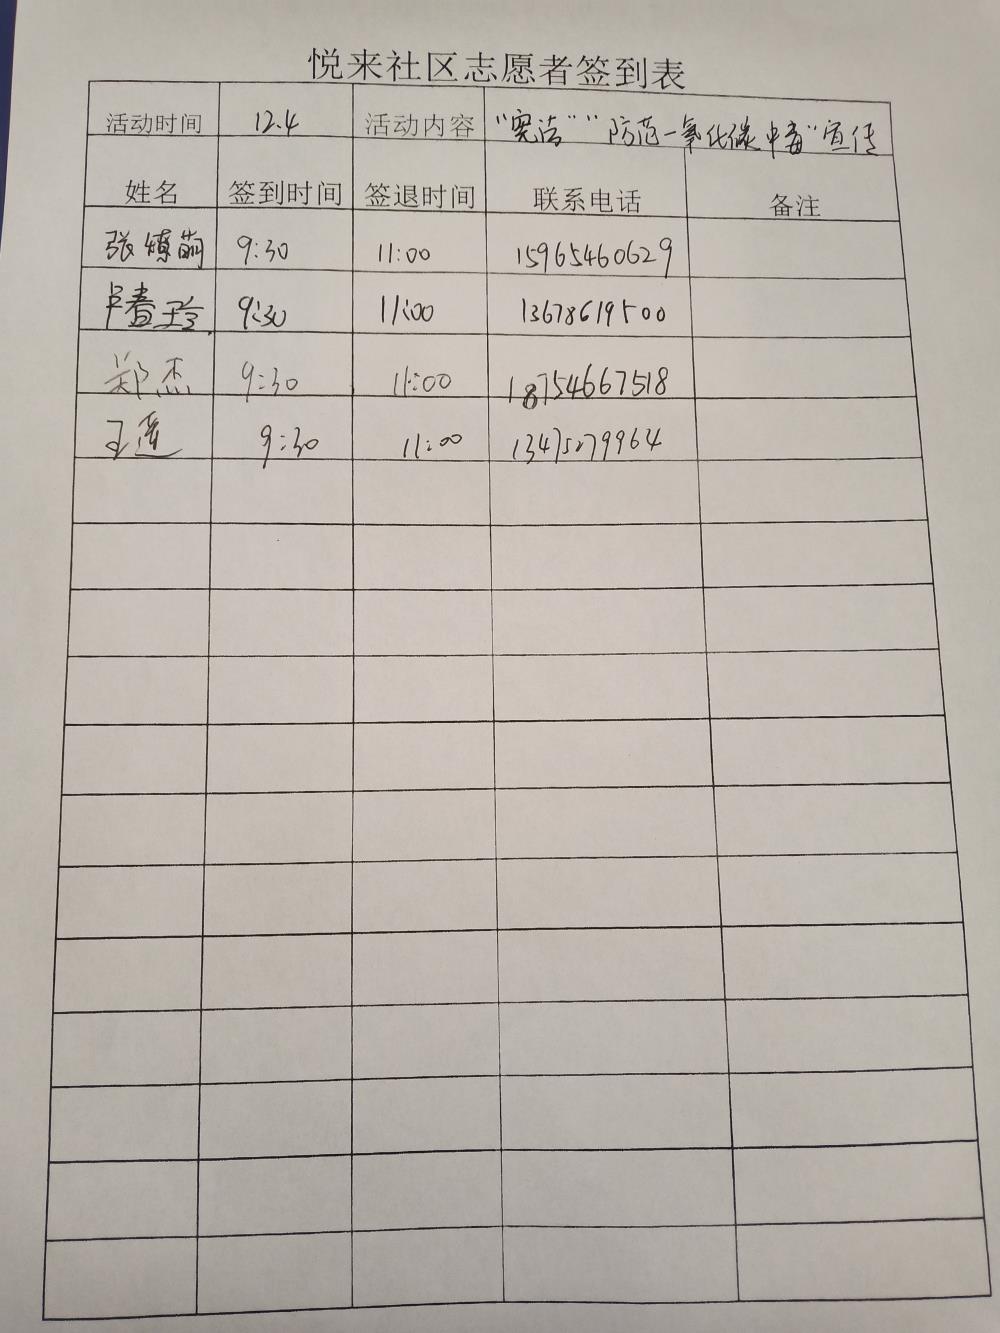 悦来社区志愿者签到表
活动时间 12.4 活动内容 "宪法" "防范一氧化碳中毒"宣传
姓名 签到时间 签退时间 联系电话 备注
张 9:30 11:00 15965460629
卢春玲 9:30 11:00 13678619500
郑杰 9:30 11:00 18754667518
王莲 9:30 11:00 13475079964